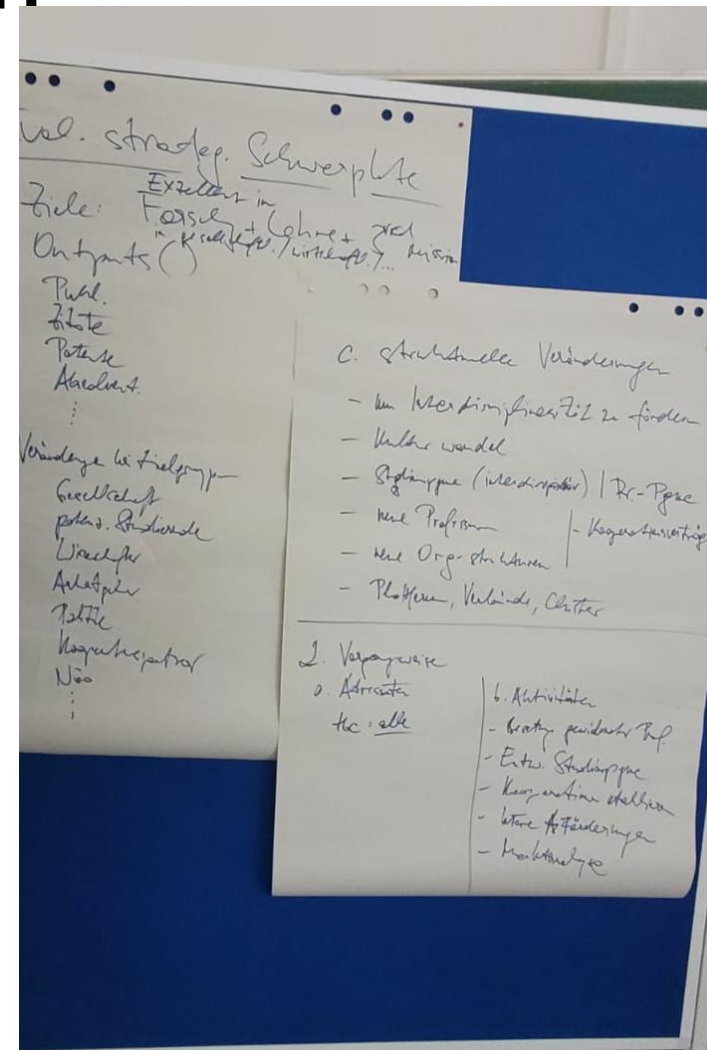 val. strateg. Schwerpkte
Exzellenz in
Ziele: Forsch + Lehre + 3rd mission
in gesellschaftl. / wirtschaftl. / ...
Outputs ( )
Publ.
Zitate
Patente
Absolvent.
⋮
Veränderungen bei Zielgruppen
Gesellschaft
potenz. Studierende
Arbeitgeber
Politik
Kooperationspartner
NGO
⋮
C. strukturelle Veränderungen
- um Interdisziplinarität zu fördern
- Kulturwandel
- Stgprogramme (interdisziplinär) | Dr.-Pgme
- neue Professuren | - Kooperationsverträge
- neue Org-strukturen
- Plattformen, Verbünde, Cluster
2. Vorgangsweise
a. Adressaten
tbc: alle
b. Aktivitäten
- gewidmeter Prof.
- Entw. Studienpgme
- Kooperationen etablieren
- interne
- Marktanalyse